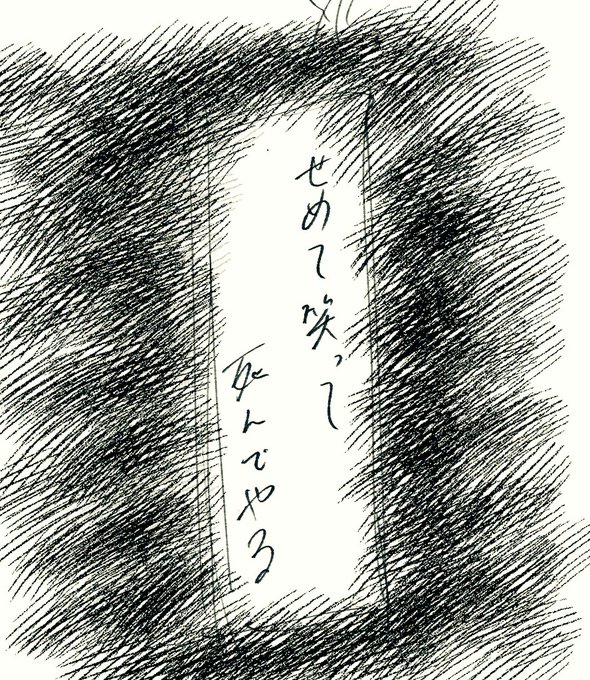 せめて笑って
死んでやる